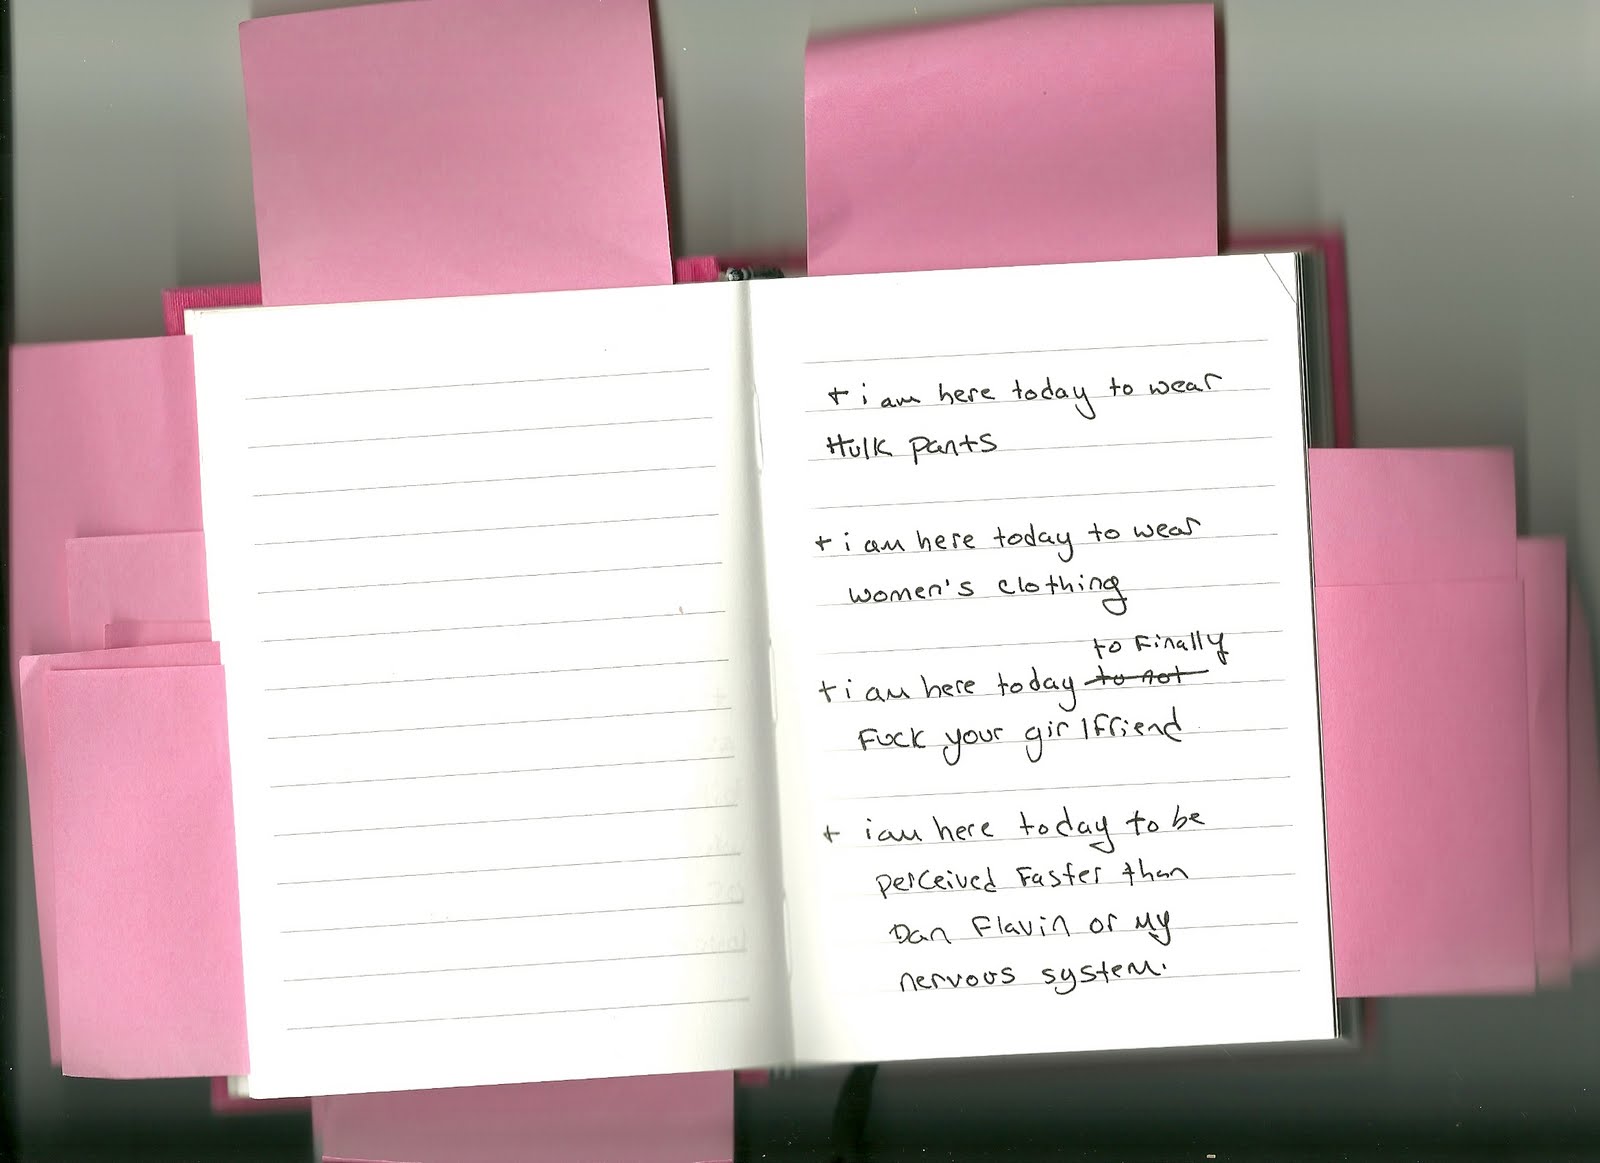 + i am here today to wear
Hulk pants
+ i am here today to wear
women's clothing
to Finally
+ i am here today to not
Fuck your girlfriend
+ i am here today to be
perceived Faster than
Dan Flavin or my
nervous system.